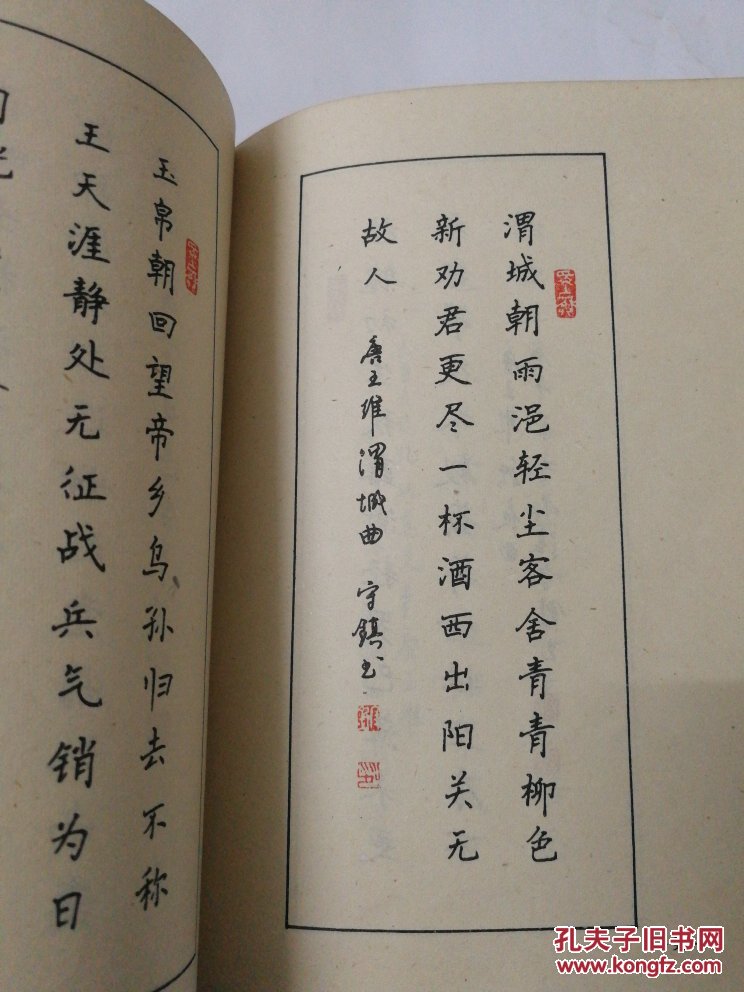 渭城朝雨浥轻尘客舍青青柳色
新劝君更尽一杯酒西出阳关无
故人
唐王维渭城曲 守镇书
玉帛朝回望帝乡乌孙归去不称
王天涯静处无征战兵气销为日
孔夫子旧书网
www.kongfz.com